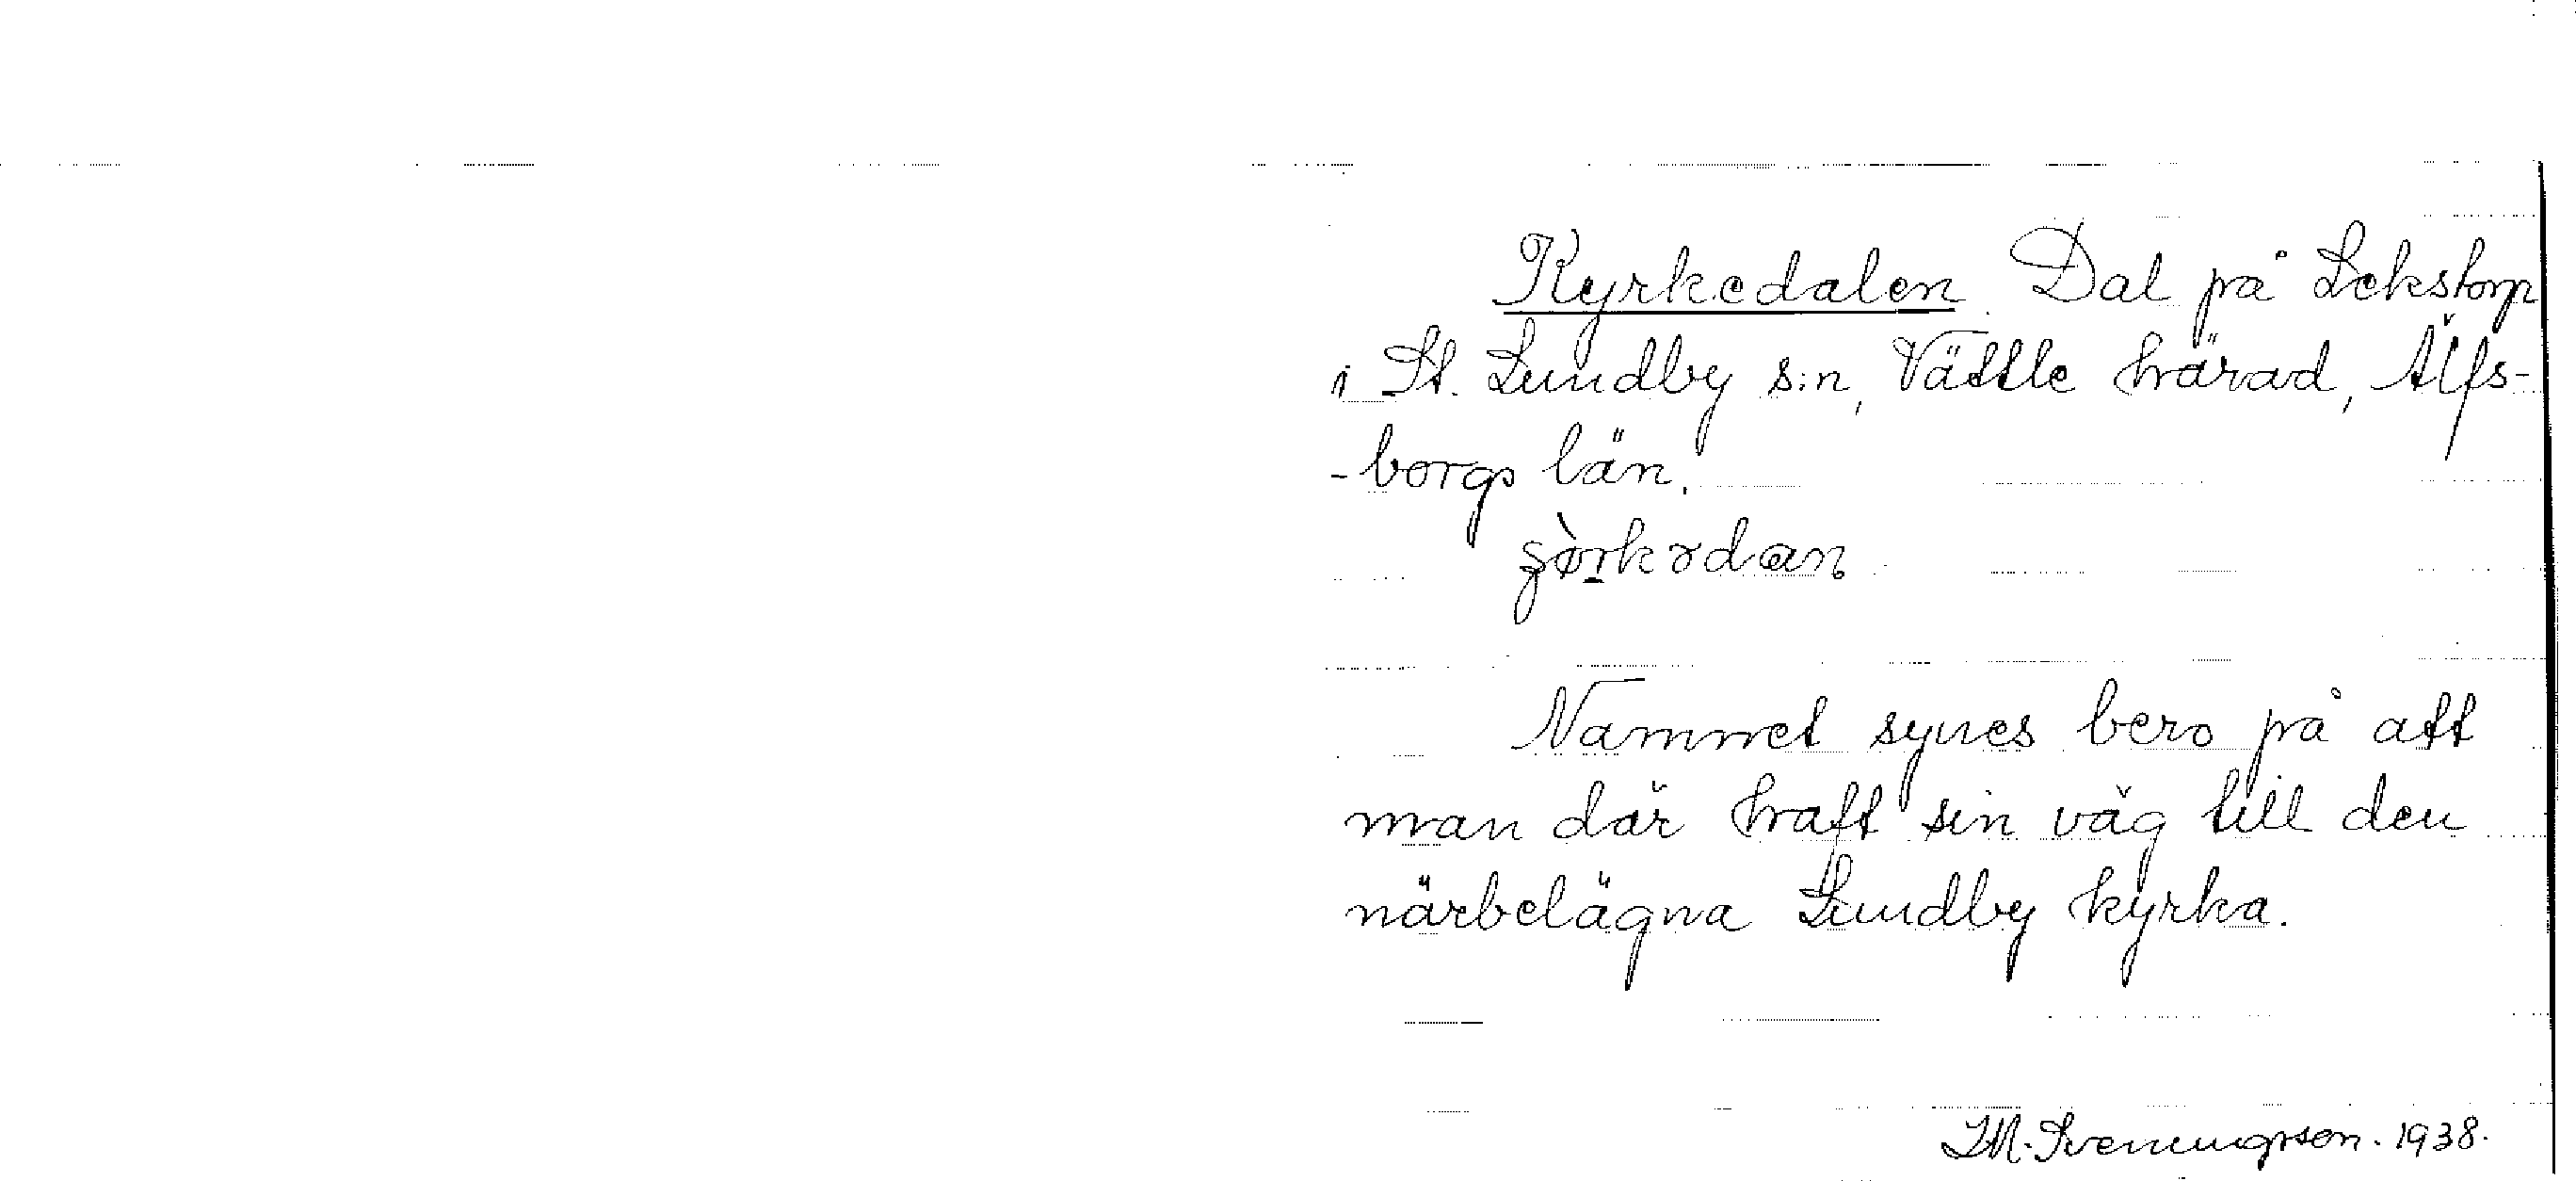 Kyrkedalen. Dal på Lekstorp
i St. Lundby s:n, Vättle härad, Älfs-
-borgs län.
Namnet synes bero på att
man där haft sin väg till den
närbelägna Lundby kyrka.
I.M. Svenungsson. 1938.